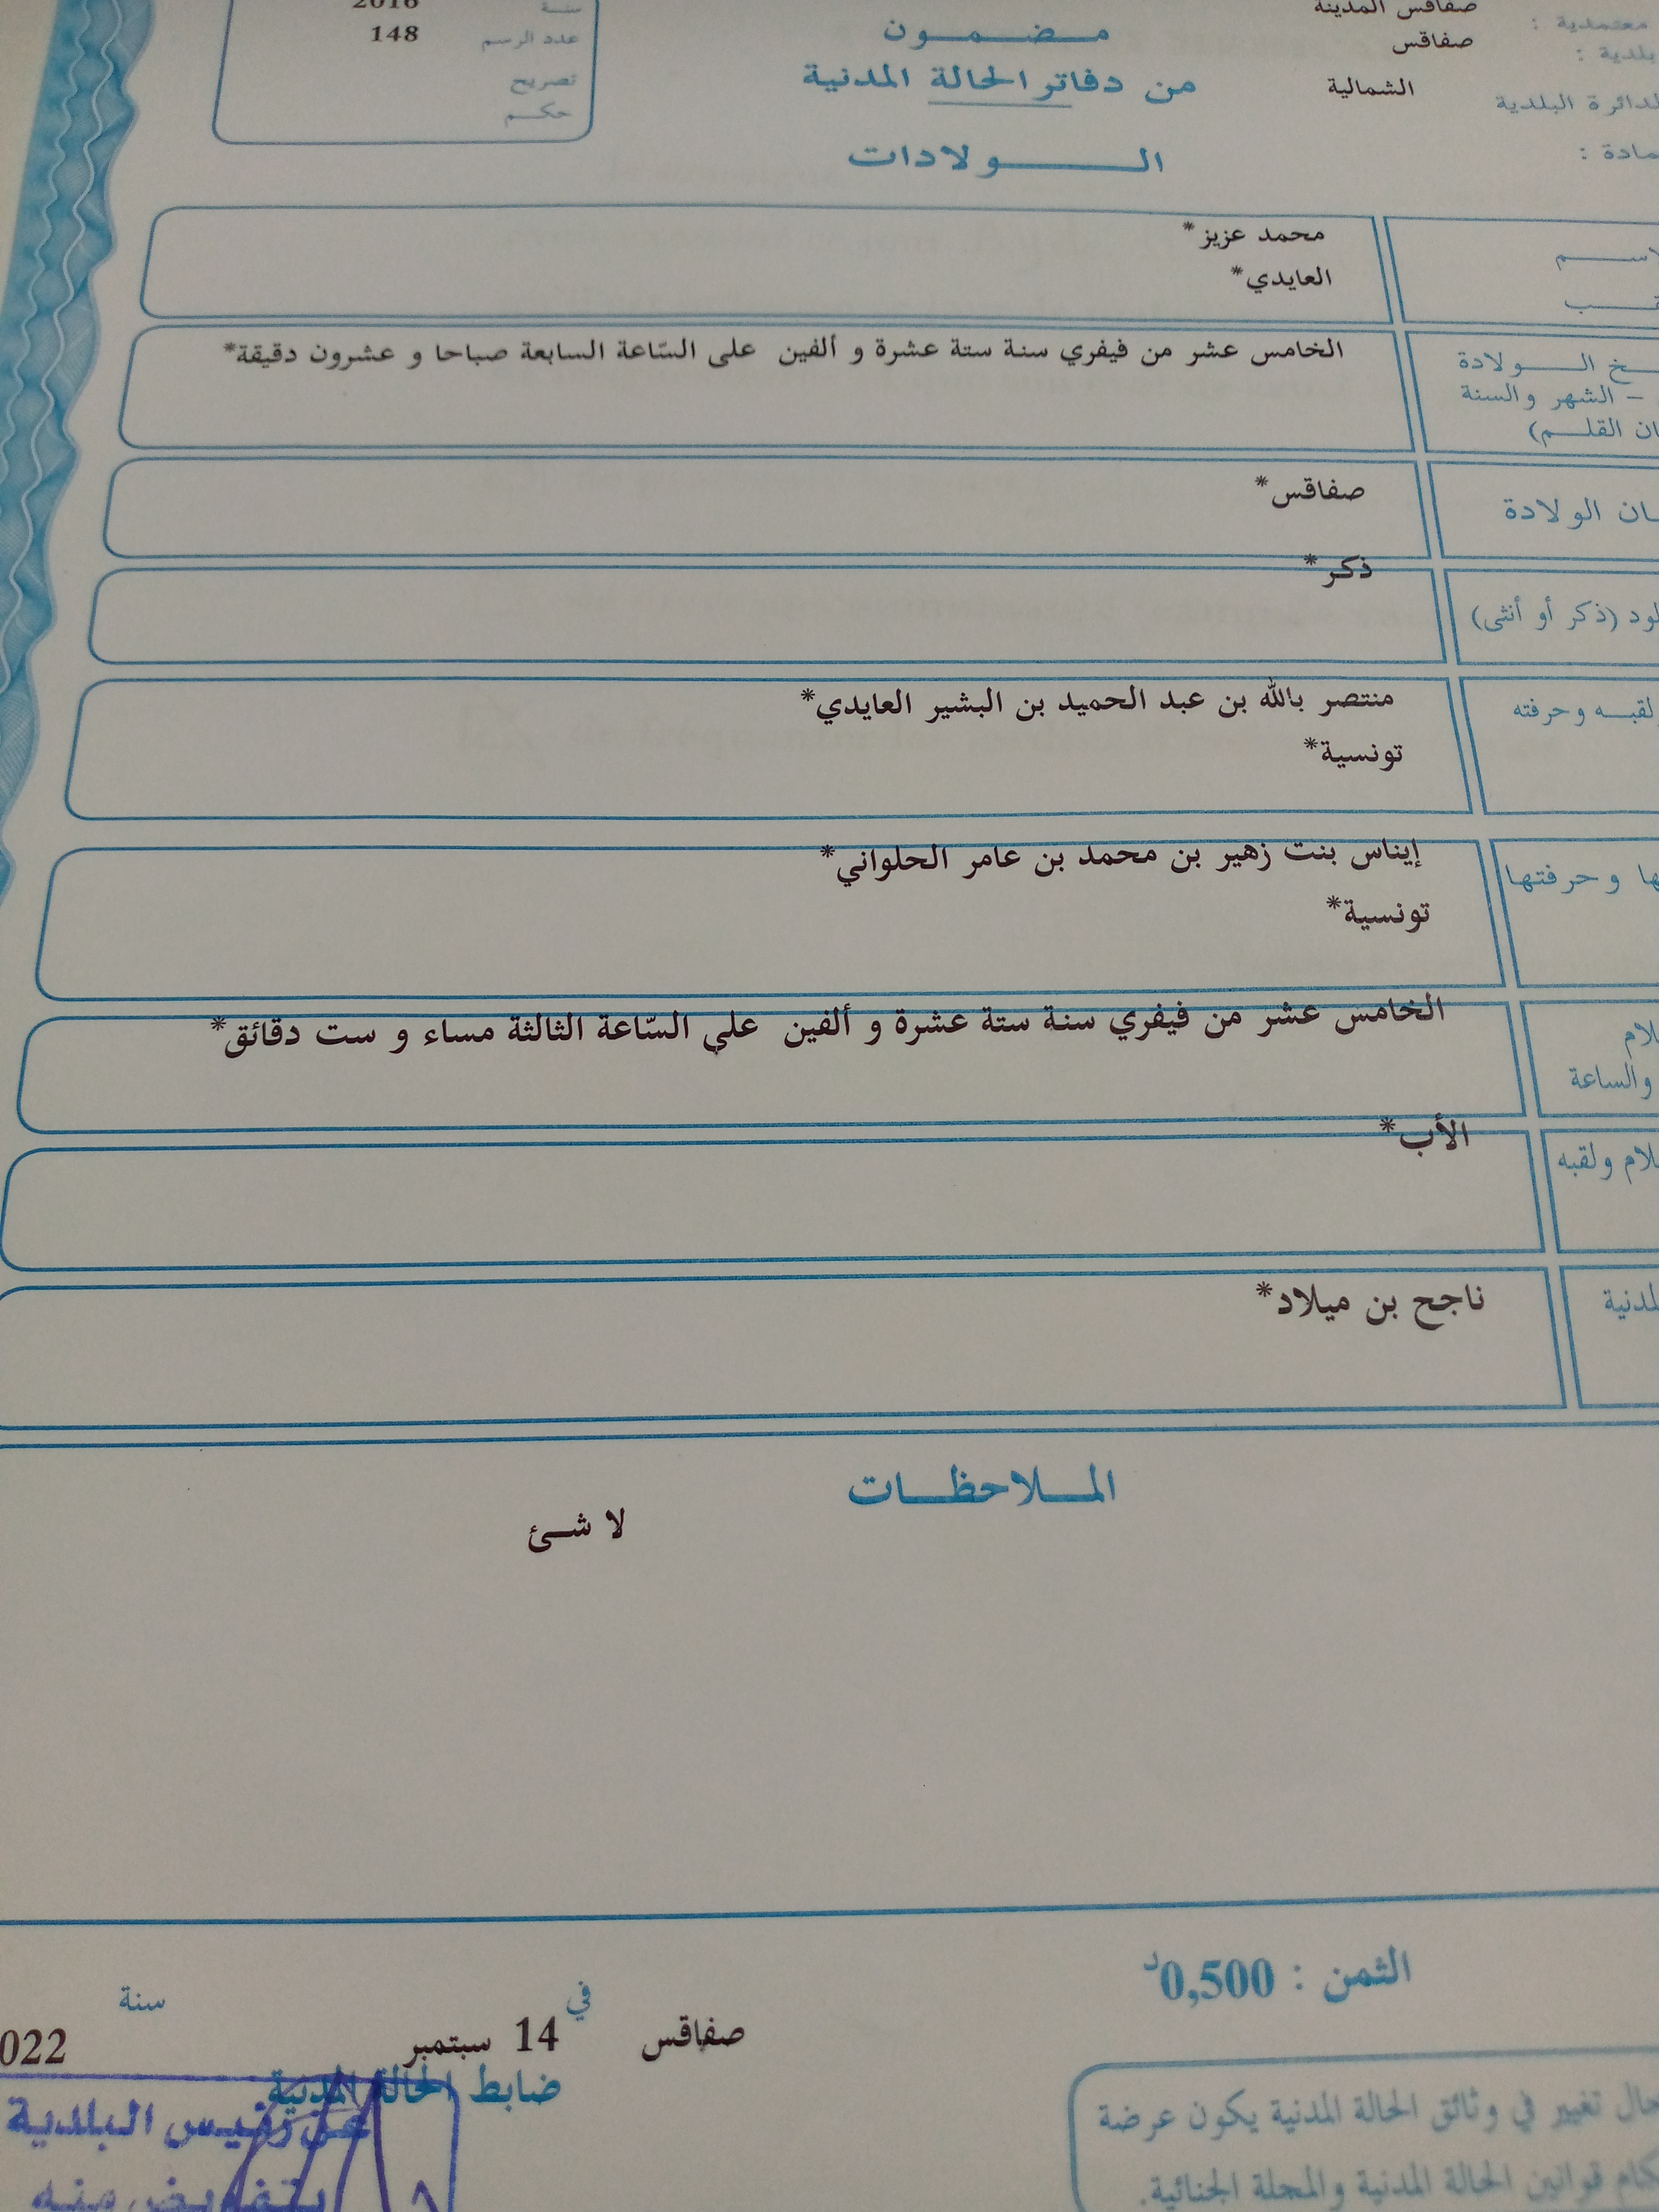 معتمدية : صفاقس المدينة
بلدية : صفاقس
الدائرة البلدية الشمالية
مادة :
مضمون
من دفاتر الحالة المدنية
الولادات
سنة 2016
عدد الرسم 148
تصريح
حكم
محمد عزيز*
العايدي*
خ الولادة
– الشهر والسنة
ان القلم)
الخامس عشر من فيفري سنة ستة عشرة و ألفين على السّاعة السابعة صباحا و عشرون دقيقة*
ان الولادة
صفاقس*
لود (ذكر أو أنثى)
ذكر*
لقبه وحرفته
منتصر بالله بن عبد الحميد بن البشير العايدي*
تونسية*
ها وحرفتها
إيناس بنت زهير بن محمد بن عامر الحلواني*
تونسية*
لام
والساعة
الخامس عشر من فيفري سنة ستة عشرة و ألفين على السّاعة الثالثة مساء و ست دقائق*
لام ولقبه
الأب*
لمدنية
ناجح بن ميلاد*
الملاحظات
لا شئ
الثمن : 0,500د
صفاقس في 14 سبتمبر سنة 022
ضابط الحالة المدنية
عن رئيس البلدية
بتفويض منه
حال تغيير في وثائق الحالة المدنية يكون عرضة
كام قوانين الحالة المدنية والمجلة الجنائية.